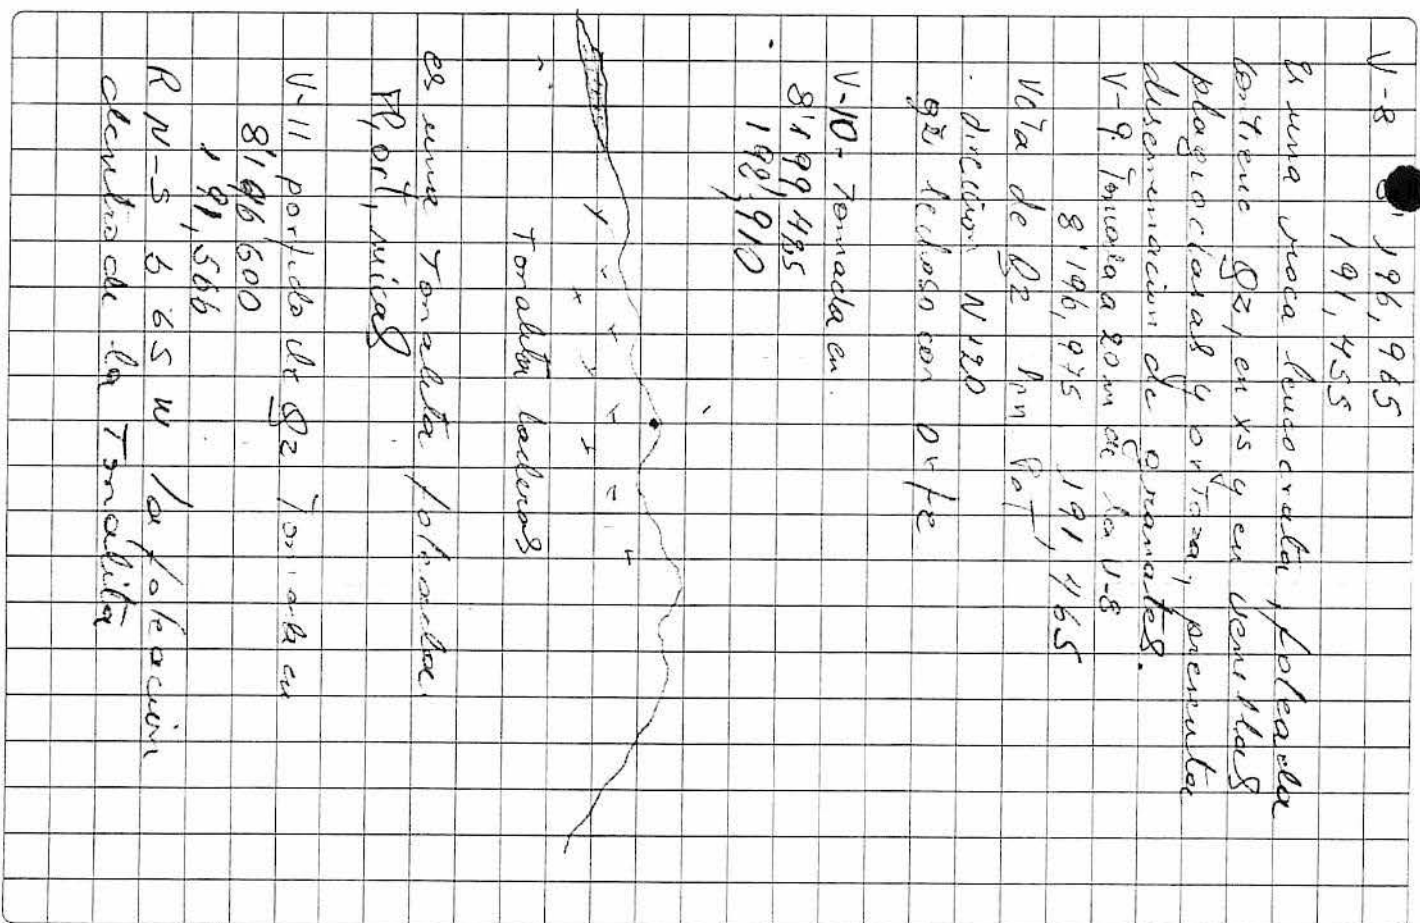 V-8 8' 196,965
191,455
Es una roca leucocrata, foleada
contiene Qz, en xs y en venillas
plagioclasas y ortoza, presenta
diseminacion de granates.
V-9 Tomada a 20 m de la V-8
8'196,975 191 465
Veta de Qz 1m Pot,
dirección N 120
qz lechoso con
V-10- Tomada en
8'199,485
198,910
Tonalita
es una Tonalita foleada.
P, ort, micas
V-11 porfido de Qz Tomada en
8'196 600
191,566
R N-S b 65 W la foleación
dentro de la Tonalita